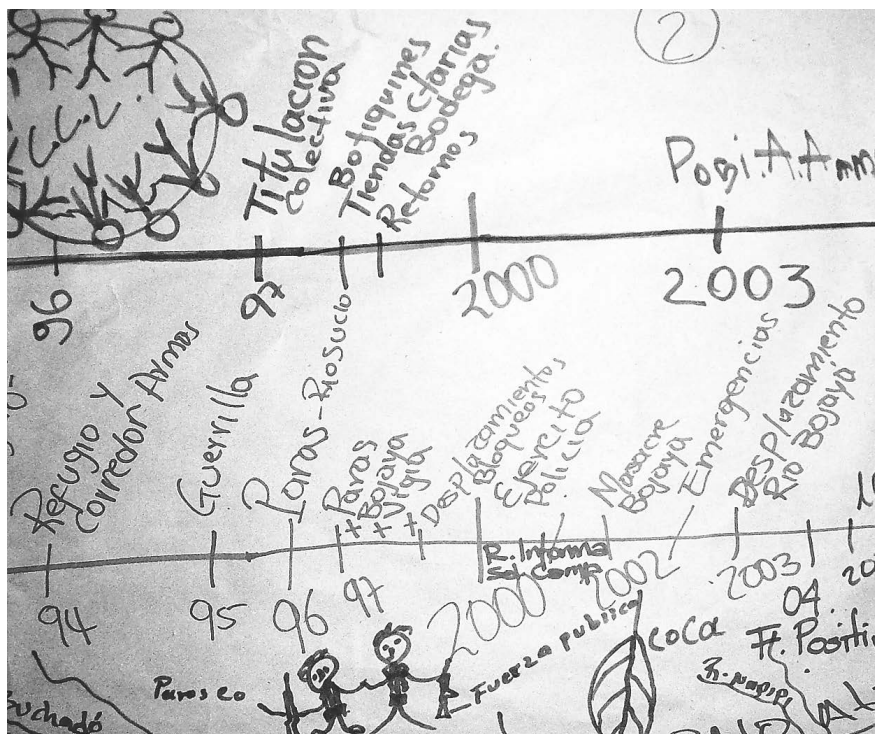 2
Titulacion
Colectiva
Botiquines
Tiendas Ctarias
Bodega.
Retornos
Posi.A.Arm
96
97
2000
2003
Refugio y
Corredor Armas
Guerrilla
Paras-Riosucio
Paras
+ Bojaya
+ Vigia
+
Desplazamientos
Bloqueos
Ejercito
Policia
Masacre
Bojaya
Emergencias
Desplazamiento
Rio Bojayá
R. Informa
Sej. Comp
94
95
96
97
2000
2002
2003
04
20
Paraseo
Fuerza publica
COCA
Ft. Positi
R. napipi
Buchadó